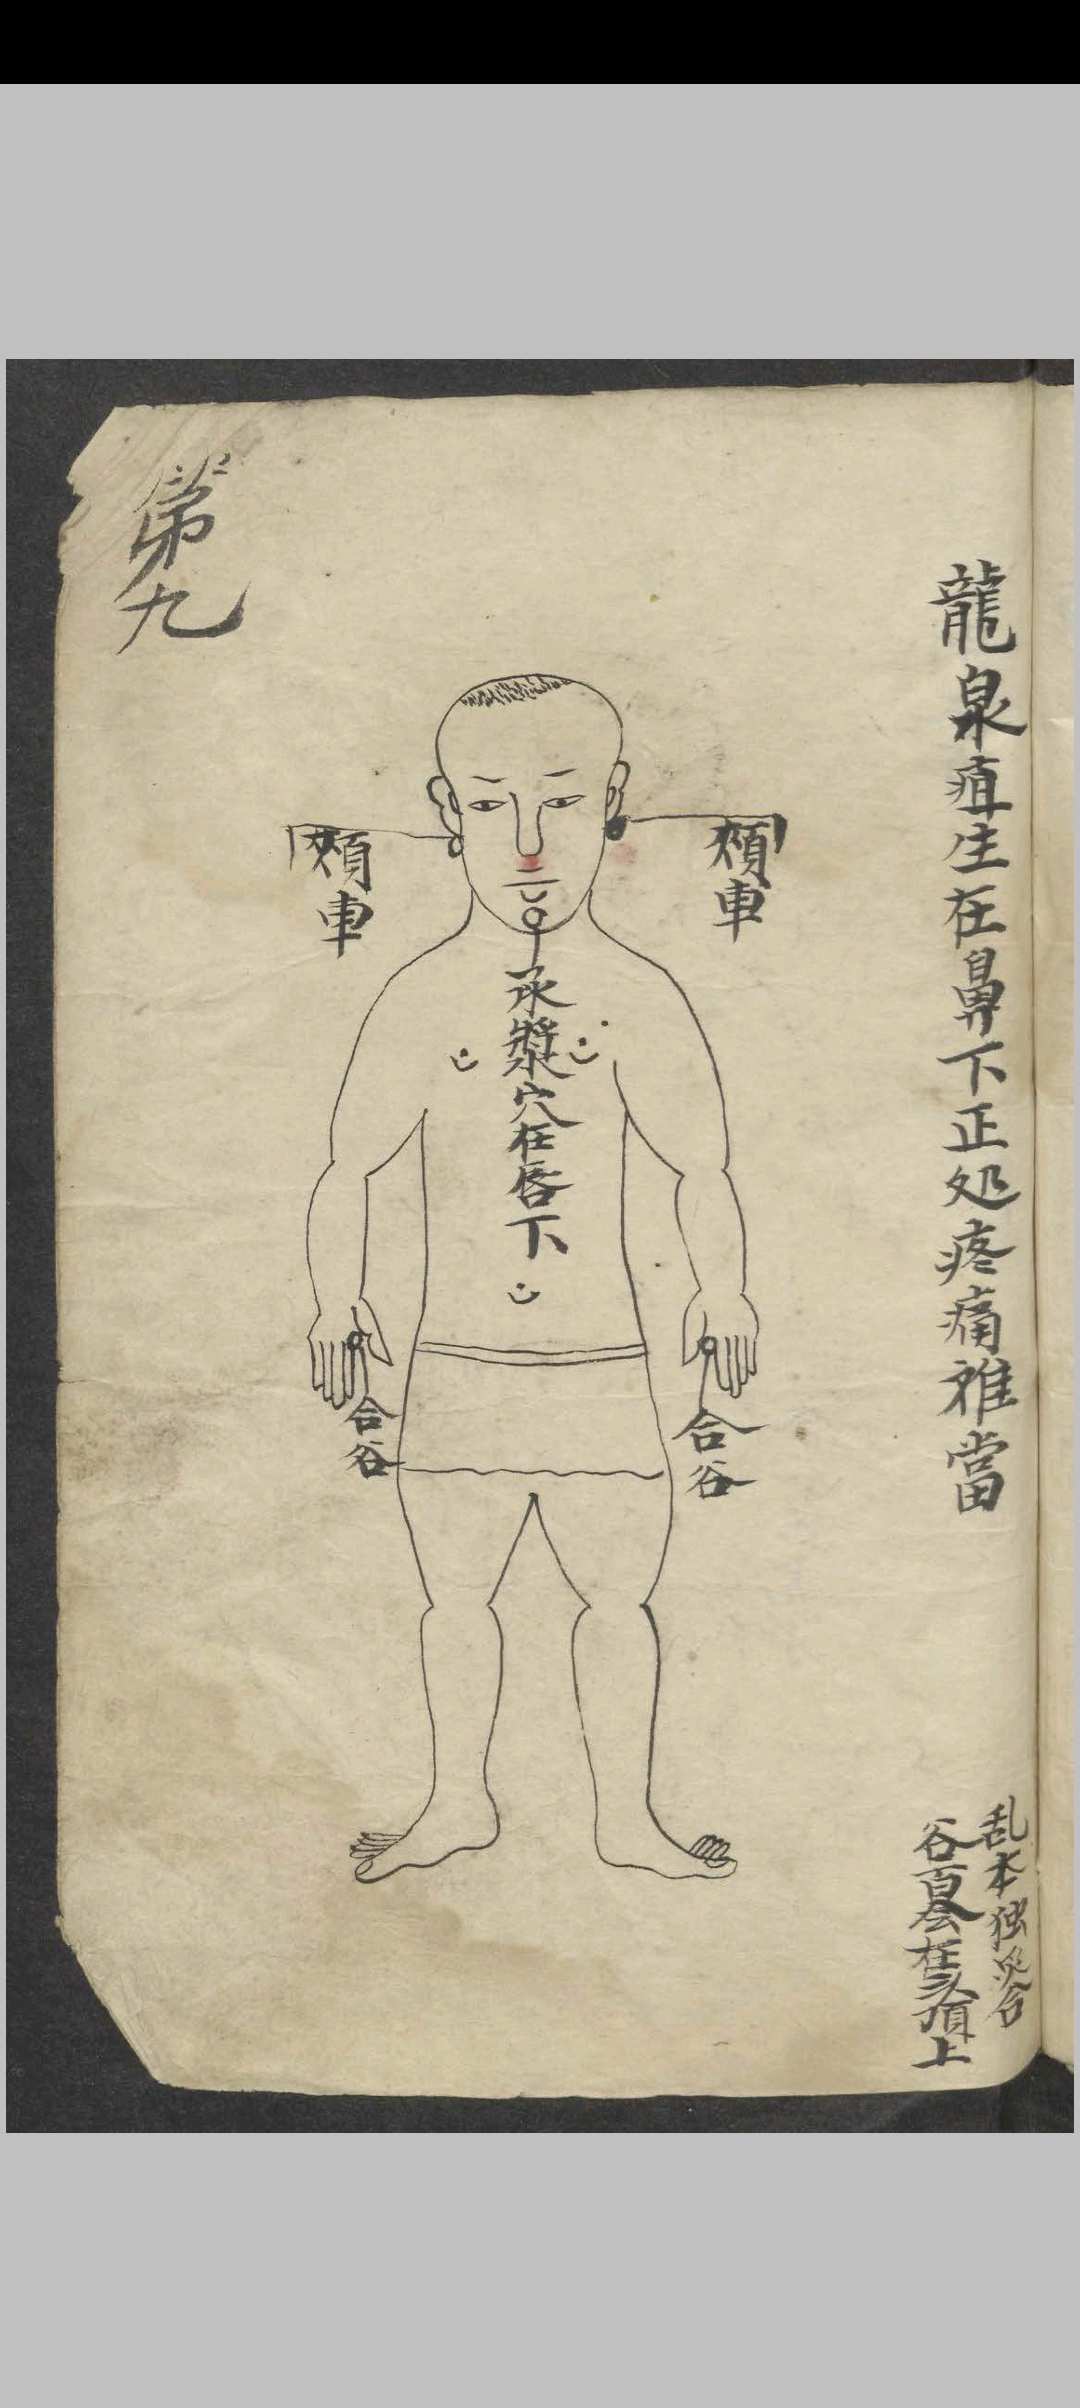 龍泉疽生在鼻下正处疼痛难當
乱本独灸合
谷百会在头頂上
頰車
頰車
承漿穴在唇下
合谷
合谷
第九